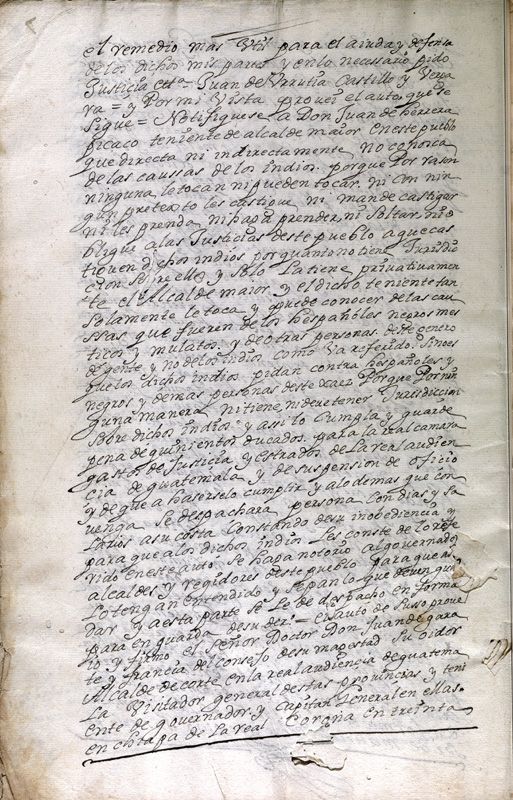 el remedio mas Vtil para el aiuda y defensa
de los dichos mis partes y en lo necessario pido
Justicia etta = Juan de Vrrutia Castillo y Vergara
ra = y Por mi Vista proveì el auto que se
sigue = Notifiquese a Don Juan de herrera
picaco teniente de alcalde maior en este pueblo
que directa ni indirectamente no conosca
de las caussas de los indios. porque Por rason
ninguna le tocan ni pueden tocar. ni con nin
gun pretexto les castigue ni mande castigar
ni les prenda ni haga prender, ni soltar, ni o
bligue a las Justicias deste pueblo a que cas
tiguen dichos indios por quanto no tiene Jurisdic
cion sobre ellos y solo la tiene privativamen
te el Alcalde maior, y el dicho teniente tan
solamente le toca y puede conocer de las cau
ssas que fueren de los hespañoles negros mes
ticos y mulatos. y de otras personas deste genero
de gente y no de los indios como va referido. Sino es
que los dichos indios pidan contra hespañoles y
negros y demas personas deste Porque Por nin
guna manera ni tiene, ni deve tener Jurisdiccion
sobre dichos indios. y assi lo cumpla y guarde
pena de quinientos ducados. para la real camara
gastos de Justicia y estrados de la real audien
cia de guatemala y de suspension de oficio
y de que a haserselo cumplir y a lo demas que con
venga se despachara persona con dias y sa
larios a su costa Constando de su inobediencia y
para que a los dichos indios les conste de lo refe
rido en este auto, se haga notorio al governador
alcaldes y regidores deste pueblo para que as
lo tengan entendido y sepan lo que deven guar
dar y a esta parte se le de despacho en forma
para en guarda de su der.o = el auto de susso prove
io y firmo el señor Doctor Don Juan de gara
te y francia del consejo de su magestad su oidor
Alcalde de corte en la real audiencia de guatema
la Visitador general destas provincias y teni
ente de governador y capitan General en ellas.
en chiapa de la real Corona en treinta